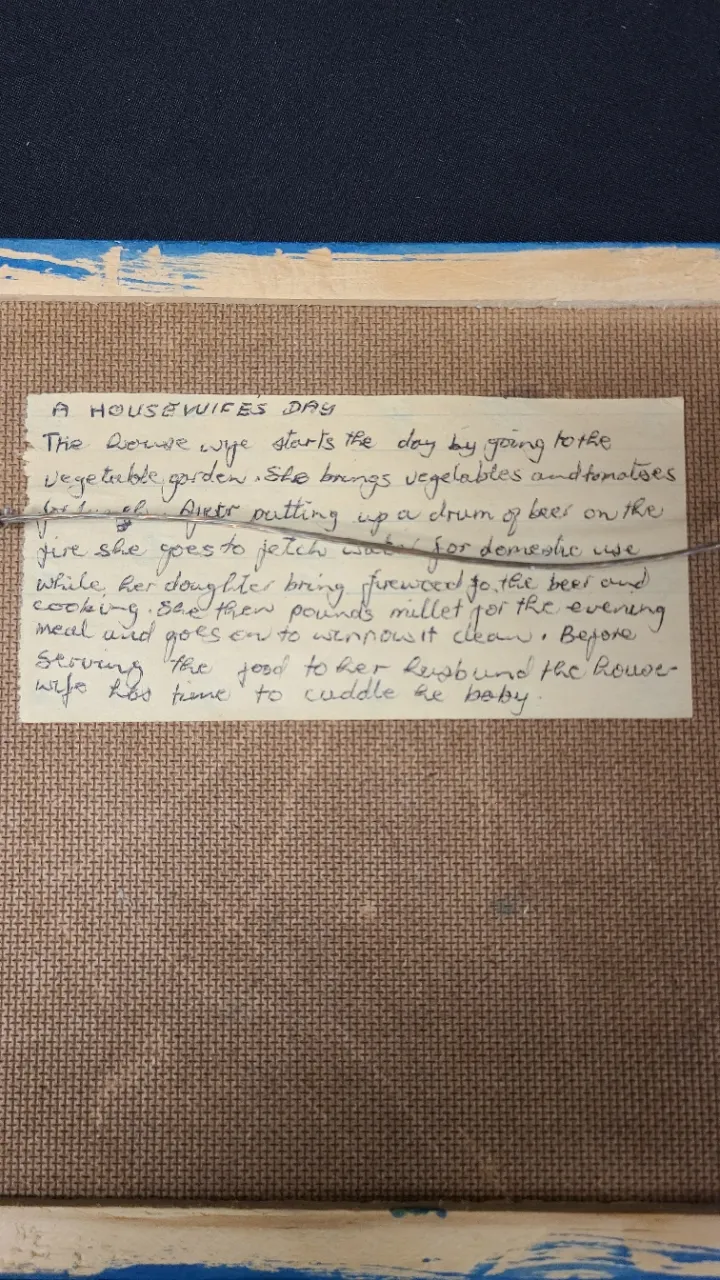 A HOUSEWIFE'S DAY
The house wife starts the day by going to the
vegetable garden. She brings vegetables and tomatoes
After putting up a drum of beer on the
fire she goes to fetch water for domestic use
while her daughter bring firewood fo the beer and
cooking. She then pounds millet for the evening
meal and goes on to winnow it clean. Before
serving the food to her husband the house-
wife has time to cuddle he baby.